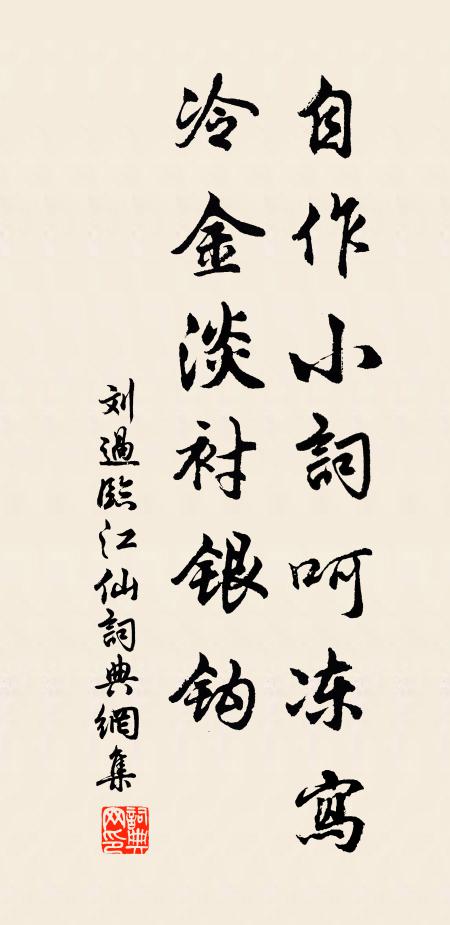 自作小詞呵冻寫
冷金淡衬銀鈎
刘過臨江仙詞典網集
詞典网印